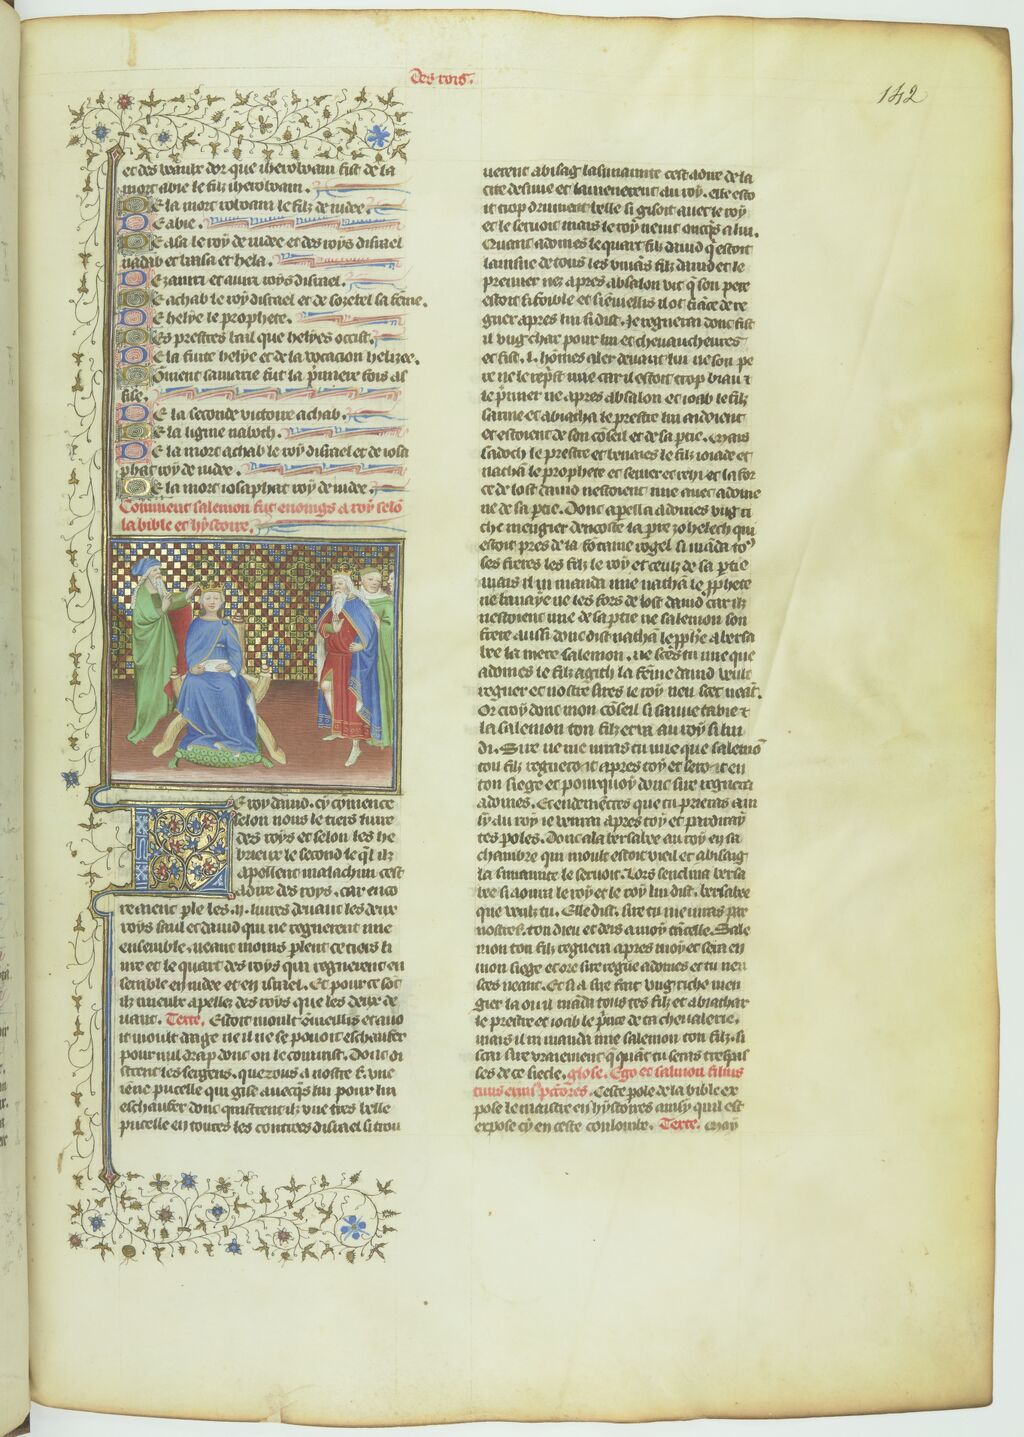 Des rois.
142
et des veaulx dor que iheroboam fist de la
mort abie le filz iheroboam.
De la mort roboam le filz de iudee.
De abie.
De asa le roy de iudee et des roys disrael
nadav et basa et hela.
De zamri et amri roys disrael.
De achab le roy disrael et de iezebel sa feme.
De helye le prophete.
Des prestres baal que helyes occist.
De la fuite helye et de la vocacion helizee.
Coment samarie fut la pmiere fois as
sise.
De la seconde victoire achab.
De la vigne naboth.
De la mort achab le roy disrael et de iosa
phat roy de iudee.
De la mort iosaphat roy de iudee.
Comment salemon fut enoings a roy selo
la bible et hystoire.
Le roy dauid. cy comence
selon nous le tiers liure
des roys et selon les he
brieux le second le ql ilz
apellent malachim cest
adire des roys. car enco
rement ple les .ij. liures deuant les deux
roys saul et dauid qui ne regnerent mie
ensemble. neant moins plent ce tiers li
ure et le quart des roys qui regnerent en
semble en iudee et en israel. Et pource sot
ilz mieulx apellez des roys que les deux de
uant. Texte. Estoit moult enuieillis et auo
it moult dage ne il ne se pouoit eschaufer
pour nul drap donc on le couurist. Donc di
strent les sergens. querons a nostre s. vne
iene pucelle qui gise auecqs lui pour lui
eschaufer donc quistrent ilz vne tres belle
pucelle en toutes les contrees disrael si trou
uerent abisag la sunamite cest adire de la
cite de sunie et lamenerent au roy. elle esto
it trop durement belle si gisoit auec le roy
et le seruoit mais le roy neut oncqs a lui.
Quant adonies le quart filz dauid q estoit
lainsne de tous les viuans filz dauid et le
premier nez apres absalon vit q son pere
estoit si foible et si enuiellis il ot esperāce de re
gner apres lui si dist. Je regnerai donc fist
il vng char pour lui et cheuaucheures
et fist .l. homes aler deuant lui ne son pe
re ne le reprist mie car il estoit trop biau et
le pmier ne apres absalon et ioab le filz
saruie et abiathar le prestre lui aidoient
et estoient de son coseil et de sa ptie. Mais
sadoch le prestre et benaies le filz ioiade et
natha le prophete et semei et reyi et la for
ce de lost dauid nestoient mie auec adonie
ne de sa ptie. Donc apella adonies vng ri
che mengier dencoste la pre zohelech qui
estoit pres de la fotaine rogel si mada to9
ses freres les filz le roy et ceulz de sa ptie
mais il ni manda mie natha le pphete
ne banaye ne les fors de lost dauid car ilz
nestoient mie de sa ptie ne salemon son
frere aussi donc dist natha le pphe a bersa
bee la mere salemon. ne sces tu mie que
adonies le filz agith la feme dauid veult
regner et nostre sires le roy nen scet neat.
Or croy donc mon coseil si sauue ta vie et
la salemon ton filz et va au roy si lui
di. Sire ne me iuras tu mie que salemo
ton filz regneroit apres toy et serroit en
ton siege et pourquoy donc sire regnera
adonies. Et endemetres que tu prieras ain
sy au roy ie venrai apres toy et pardiray
tes poles. Donc ala bersabee au roy en sa
chambre qui moult estoit vieil et abisag
la sunamite le seruoit. Lors senclina bersa
bee si aoura le roy et le roy lui dist. bersabee
que veulz tu. Elle dist. sire tu me iuras par
nostre s. ton dieu et deis a moy tancelle. Sale
mon ton filz regnera apres moy et serra en
mon siege et ore sire regne adonies et tu nen
sces neant. Et si a sire fait vng riche men
gier la ou il mada tous tes filz et abiathar
le prestre et ioab le pnce de ta cheualerie.
mais il ni manda mie salemon ton filz. si
scai sire vraiement q quat tu seras trespas
ses de ce siecle. glose. Ego et salmon filius
tuus erim9 pctores. Ceste pole de la bible ex
pose le maistre en hystoires ainsy quil est
expose cy en ceste coulombe. Texte. may